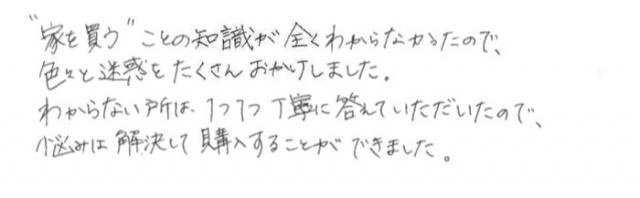 "家を買う"ことの知識が全くわからなかったので、
色々と迷惑をたくさんおかけしました。
わからない所は、1つ1つ丁寧に答えていただいたので、
悩みは解決して購入することができました。